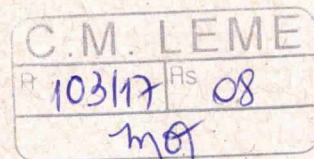 C.M. LEME
P 103/17 Fls 08